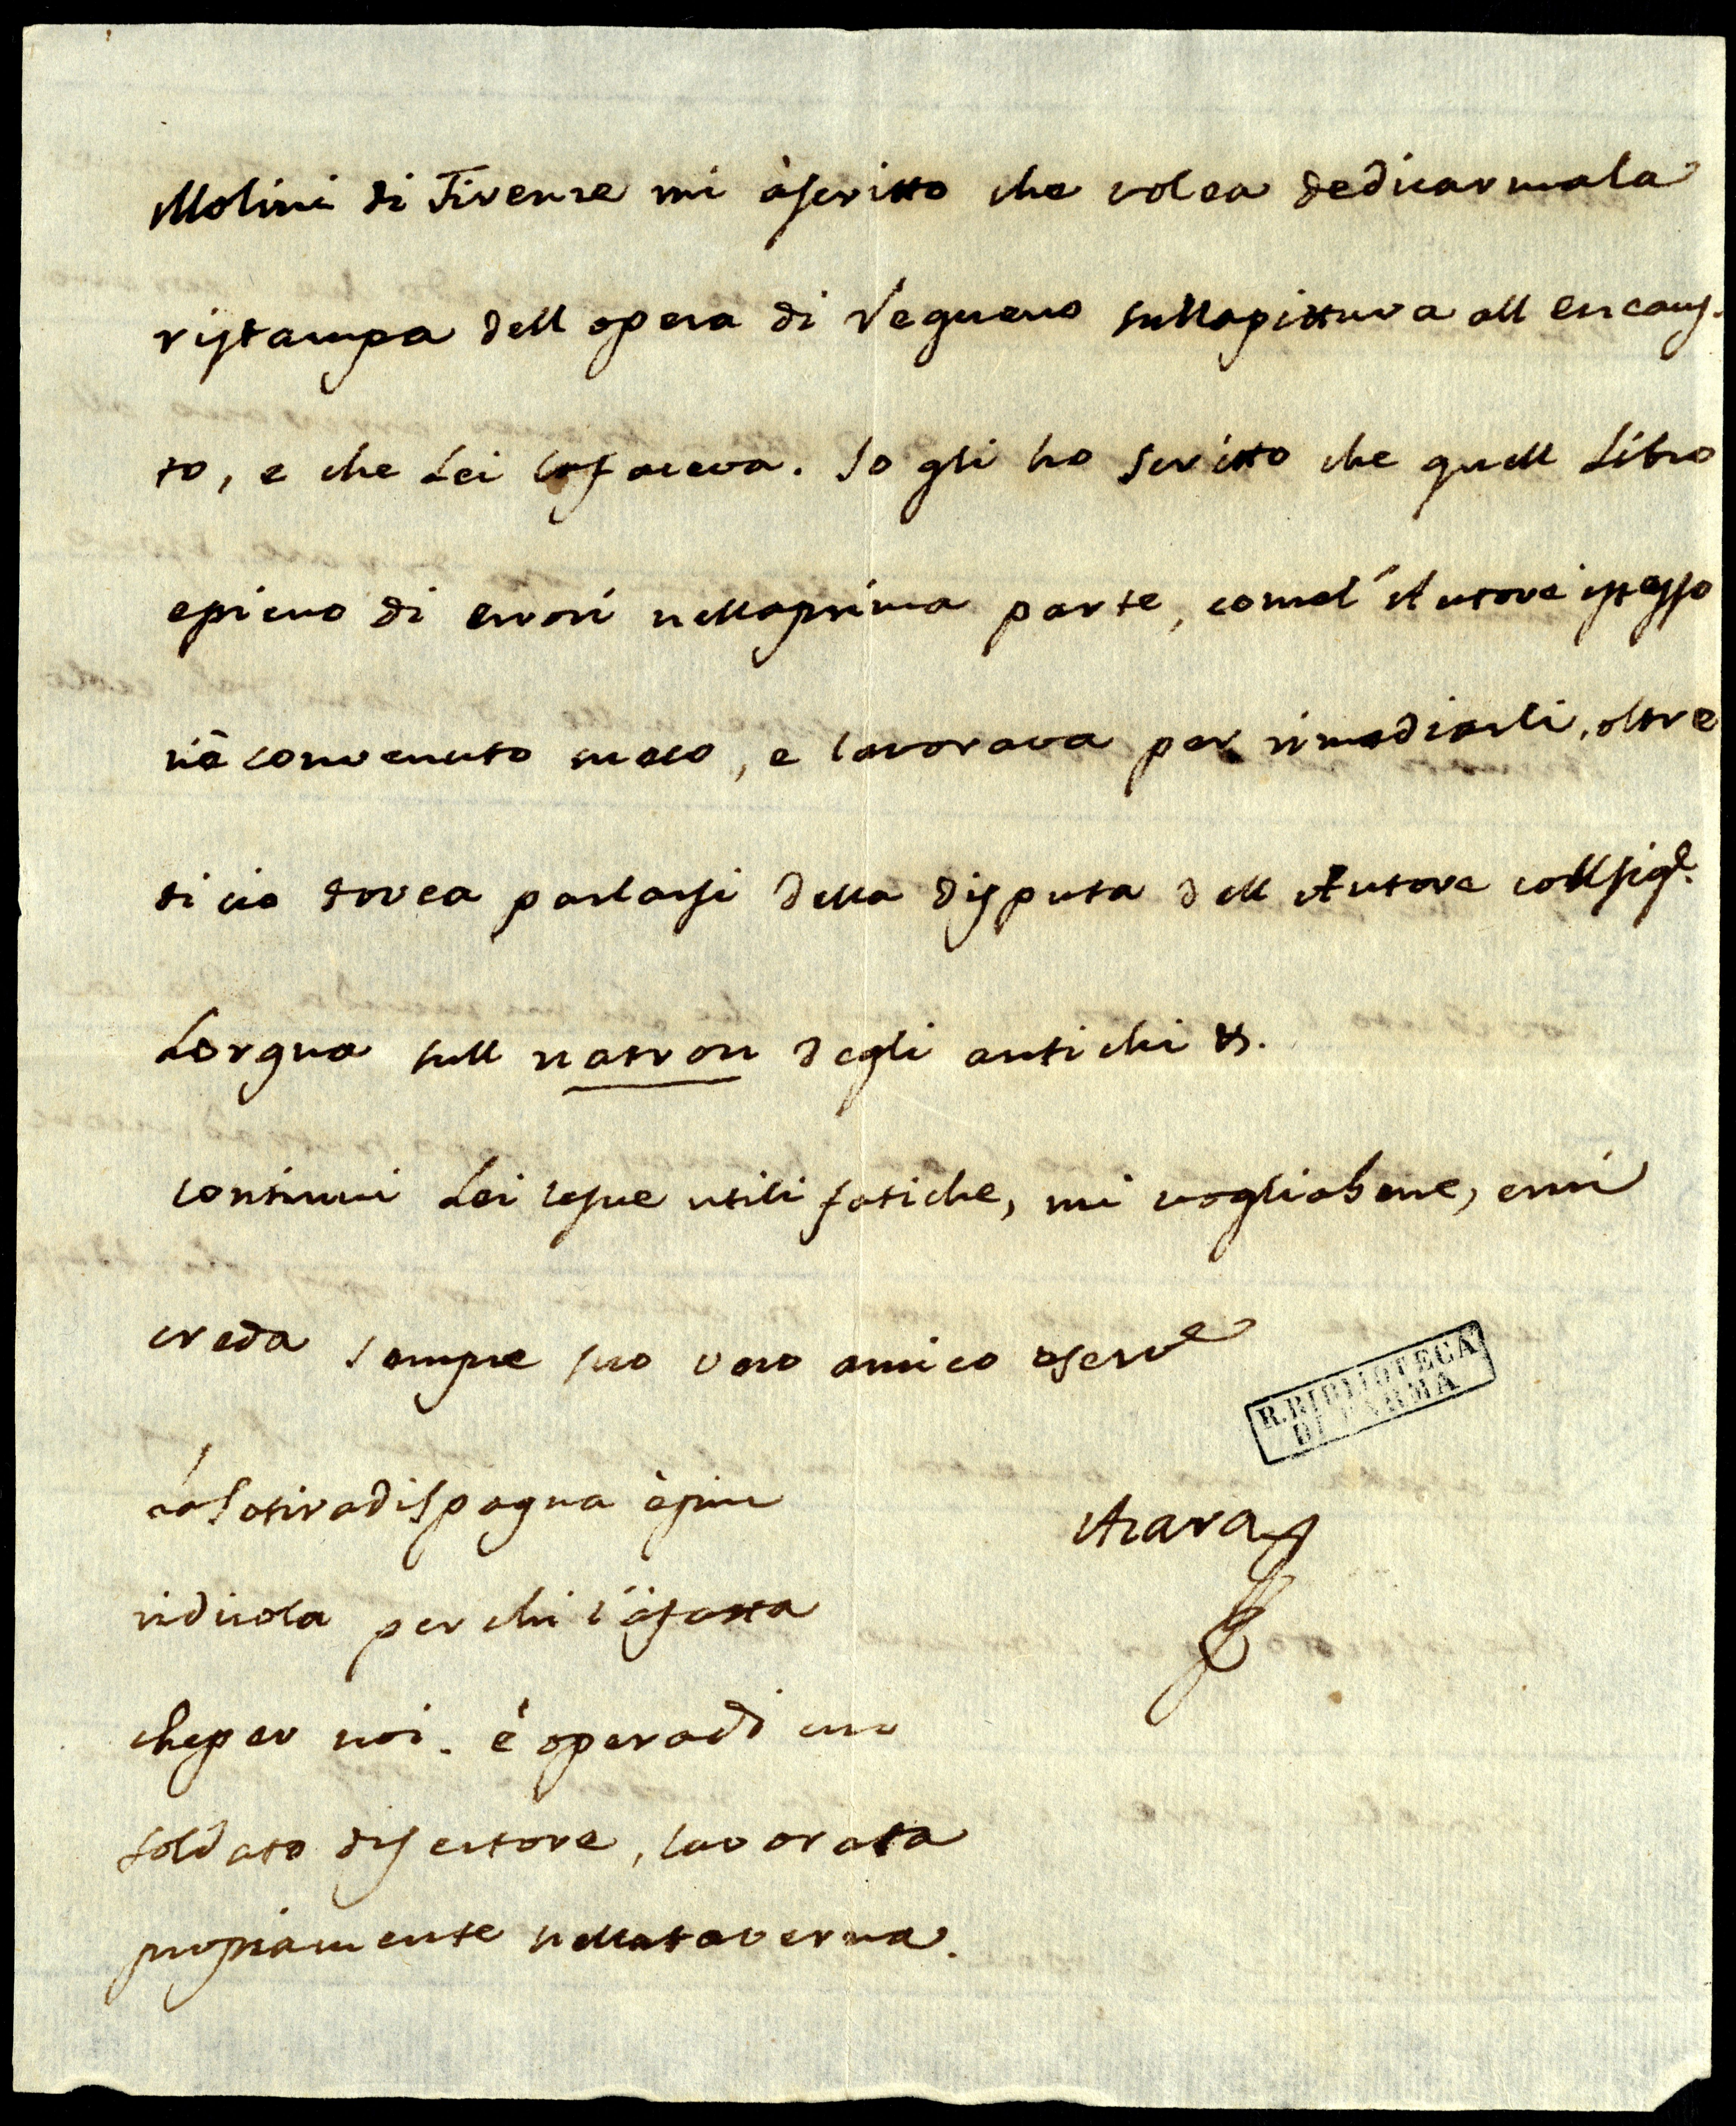 Molini di Firenze mi à scritto che volea dedicarmala
ristampa dell opera di Requeno sullapittura all encaus-
to, e che Lei lafaceva. Io gli ho scritto che quell Libro
epieno di errori nellaprima parte, comel'Autore istesso
n'è convenuto meco, e lavorava per rimediarli, oltre
di cio dovea parlarsi della disputa dell Autore collsigre.
Lorgna sull natron degli antichi &.
continui Lei lesue utili fatiche, mi vogliabene, emi
creda sempre suo vero amico oserve
R. BIBLIOTECA
DI PARMA
Azara
laSatiradispagna èpiu
ridicola per chi l'àfatta
cheper noi. è operadi un
soldato disertore, lavorata
propriamente nellataverna.